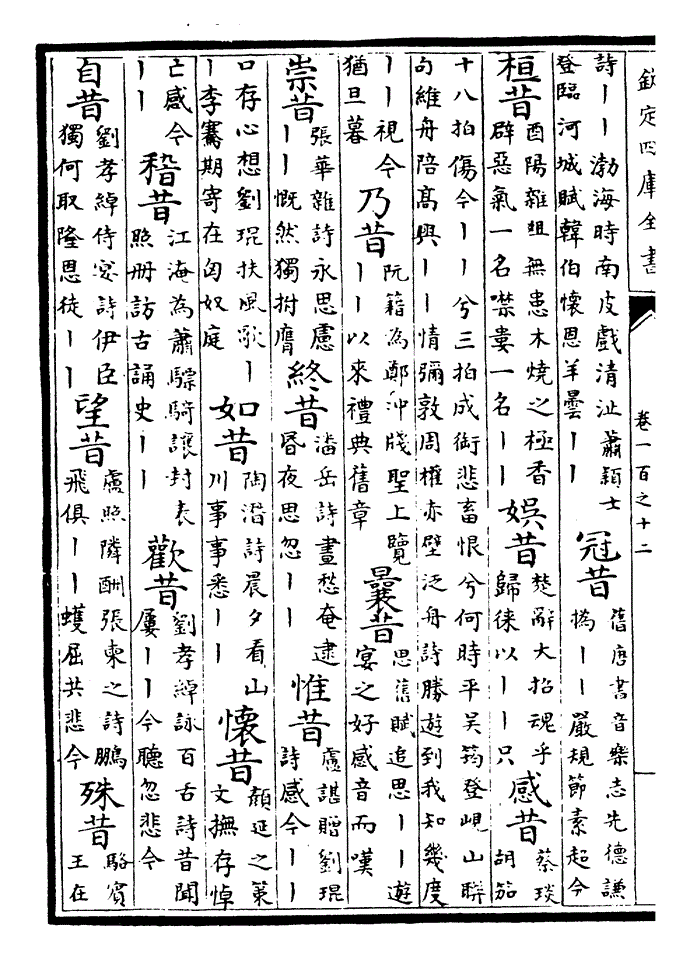 欽定四庫全書
卷一百之十二
詩丨丨渤海時南皮戲清沚蕭穎士
登臨河城賦韓伯懷恩羊曇丨丨
冠昔
舊唐書音樂志先德謙
撝丨丨嚴規節素超今
桓昔
酉陽雜俎無患木燒之極香
辟惡氣一名噤婁一名丨丨
娛昔
楚辭大招魂乎
歸徠以丨丨只
感昔
蔡琰
胡笳
十八拍傷今丨丨兮三拍成銜悲畜恨兮何時平吳筠登峴山聨
句維舟陪髙興丨丨情彌敦周權赤壁泛舟詩勝遊到我知幾度
丨丨視今
猶旦暮
乃昔
阮籍為鄭沖牋聖上覽
丨丨以來禮典舊章
曩昔
思舊賦追思丨丨遊
宴之好感音而嘆
崇昔
張華雜詩永思慮
丨丨慨然獨拊膺
終昔
潘岳詩晝愁奄逮
昬夜思忽丨丨
惟昔
盧諶贈劉琨
詩感今丨丨
口存心想劉琨扶風歌丨
丨李騫期寄在匈奴庭
如昔
陶潛詩晨夕看山
川事事悉丨丨
懷昔
顔延之策
文撫存悼
亡感今
丨丨
稽昔
江海為蕭驃騎讓封表
照冊訪古誦史丨丨
歡昔
劉孝綽詠百古詩昔聞
屢丨丨今聽忽悲今
自昔
劉孝綽侍宴詩伊臣
獨何取隆恩徒丨丨
望昔
盧照隣酬張柬之詩鵬
飛俱丨丨蠖屈共悲今
殊昔
駱賓
王在